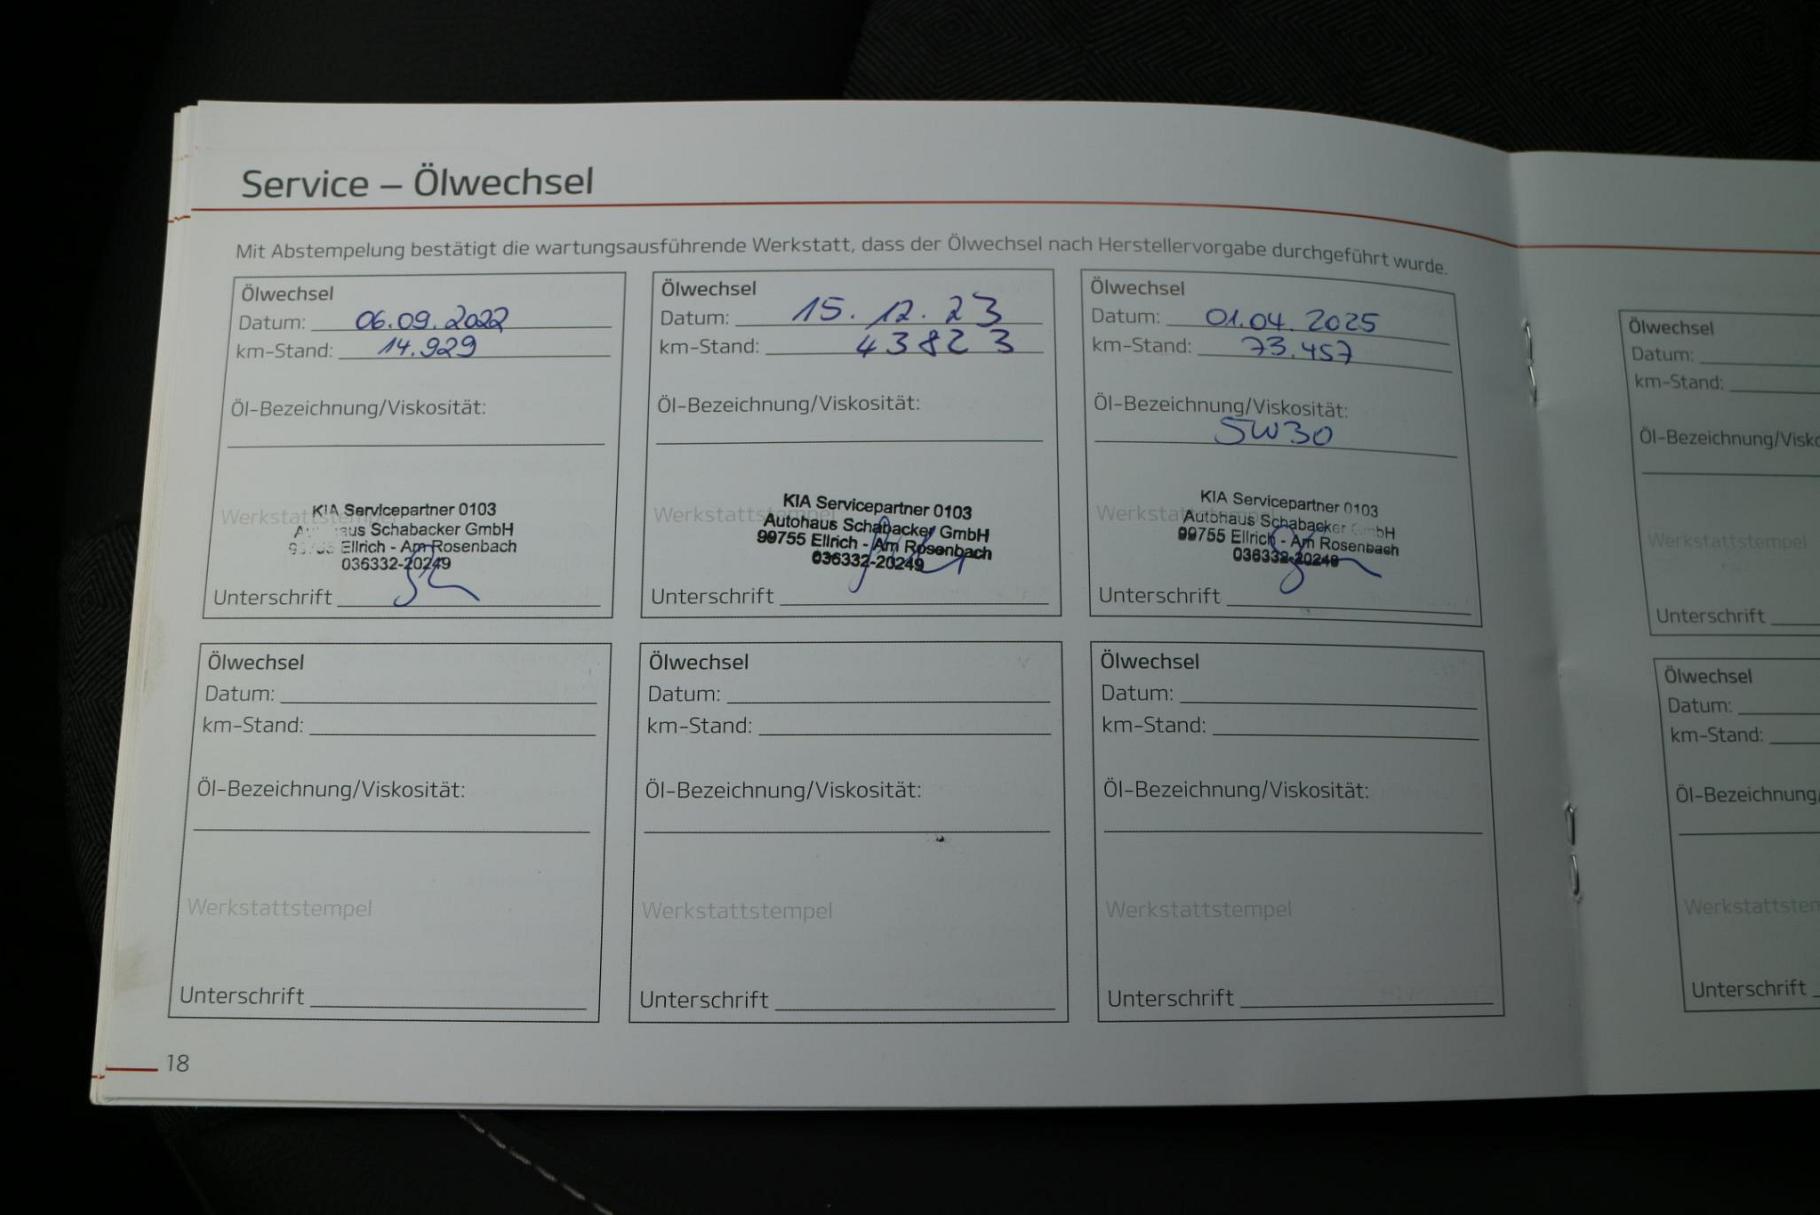 Service – Ölwechsel
Mit Abstempelung bestätigt die wartungsausführende Werkstatt, dass der Ölwechsel nach Herstellervorgabe durchgeführt wurde.
Ölwechsel
Datum: 06.09.2022
km-Stand: 14.929
Öl-Bezeichnung/Viskosität:
KIA Servicepartner 0103
Schabacker GmbH
Ellrich - Am Rosenbach
036332-20249
Unterschrift
Ölwechsel
Datum: 15.12.23
km-Stand: 43823
Öl-Bezeichnung/Viskosität:
Werkstattstempel
KIA Servicepartner 0103
Autohaus Schabacker GmbH
99755 Ellrich - Am Rosenbach
036332-20249
Unterschrift
Ölwechsel
Datum: 01.04.2025
km-Stand: 73.457
Öl-Bezeichnung/Viskosität:
5W30
KIA Servicepartner 0103
Autohaus Schabacker GmbH
99755 Ellrich - Am Rosenbach
036332-20249
Unterschrift
Ölwechsel
Datum:
km-Stand:
Öl-Bezeichnung/Viskosität:
Werkstattstempel
Unterschrift
Ölwechsel
Datum:
km-Stand:
Öl-Bezeichnung/Viskosität:
Werkstattstempel
Unterschrift
Ölwechsel
Datum:
km-Stand:
Öl-Bezeichnung/Viskosität:
Werkstattstempel
Unterschrift
18
Ölwechsel
Datum:
km-Stand:
Öl-Bezeichnung/Visko
Werkstattstempel
Unterschrift
Ölwechsel
Datum:
km-Stand:
Öl-Bezeichnung/
Werkstattstem
Unterschrift